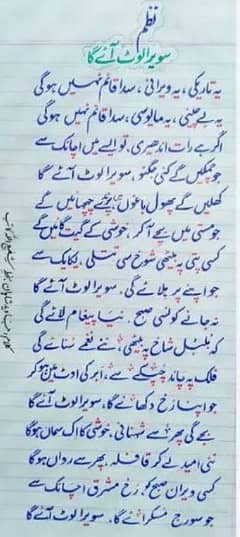 نظم
سویرا لوٹ آئے گا
یہ تاریکی، یہ ویرانی، سدا قائم نہیں ہوگی
یہ بے چینی، یہ مایوسی، سدا قائم نہیں ہوگی
اگر ہے رات اندھیری، تو ایسے میں اچانک سے
جو چمکیں گے کئی جگنو، سویرا لوٹ آئے گا
کھلیں گے پھول باغوں، پرندے چہچہائیں گے
جو مستی میں بچے آ کر، خوشی کے گیت گائیں گے
کسی پتی پہ بیٹھی شوخ سی تتلی، یکایک سے
جو اپنے پر ہلائے گی، سویرا لوٹ آئے گا
نہ جانے کونسی صبح، نیا پیغام لائے گی
کہ بلبل شاخ پہ بیٹھی، نئے نغمے سنائے گی
فلک پہ چاند چپکے سے، ابر کی اوٹ میں ہو کر
جو اپنا رخ دکھائے گا، سویرا لوٹ آئے گا
بجے گی پھر سے شہنائی، خوشی کا اک سماں ہوگا
نئی امید لے کر قافلہ، پھر سے رواں ہوگا
کسی ویران صبح کو، رخ مشرق اچانک سے
جو سورج مسکرائے گا، سویرا لوٹ آئے گا